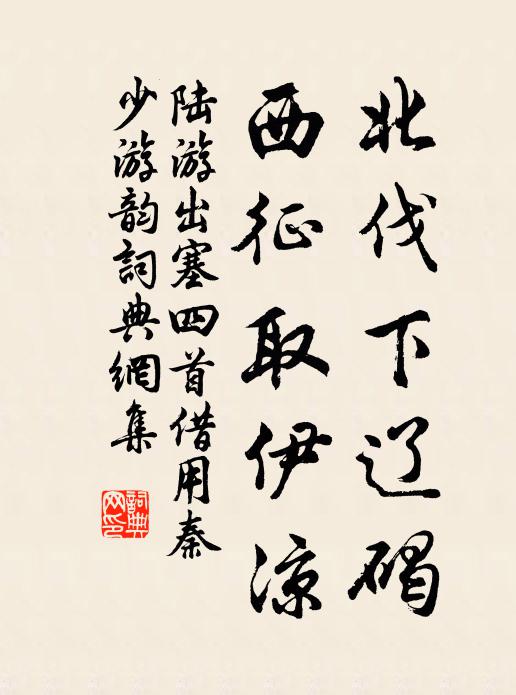 北伐下辽碣
西征取伊凉
陆游出塞四首借用秦
少游韵词典網集
詞典
网印